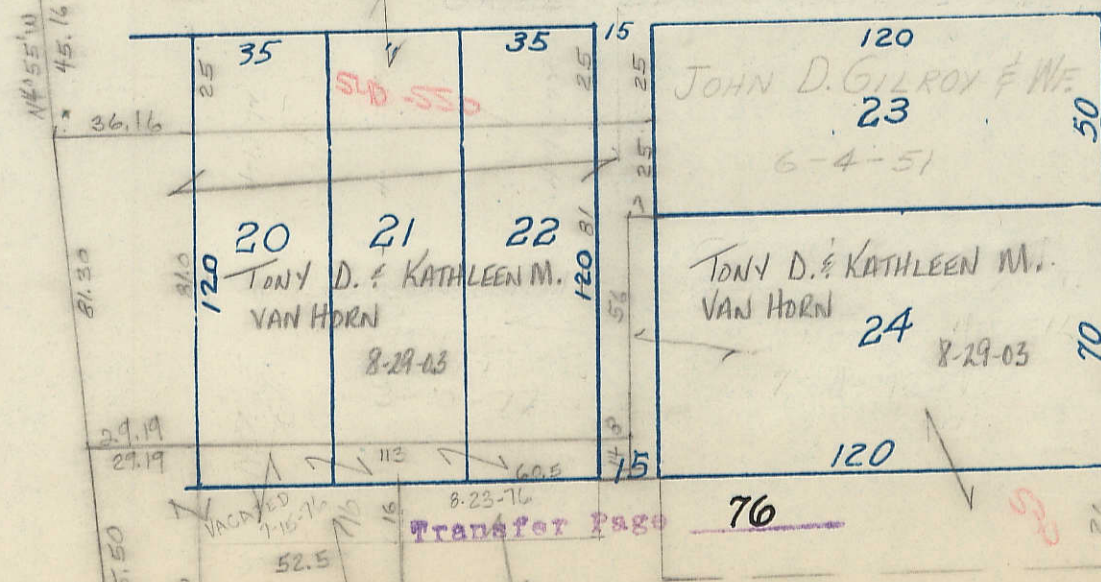 N4°55'W
45.16
35
35
15
120
25
25
25
SLP -550
JOHN D. GILROY & WF.
23
50
6-4-51
36.16
25
20
21
22
81
81.0
120
120
81.30
TONY D. & KATHLEEN M.
VAN HORN
8-29-03
56
TONY D. & KATHLEEN M.
VAN HORN
24
8-29-03
70
29.19
29.19
113
60.5
14
8
15
120
VACATED
7-15-76
716
16
8-23-76
Transfer Page 76
52.5